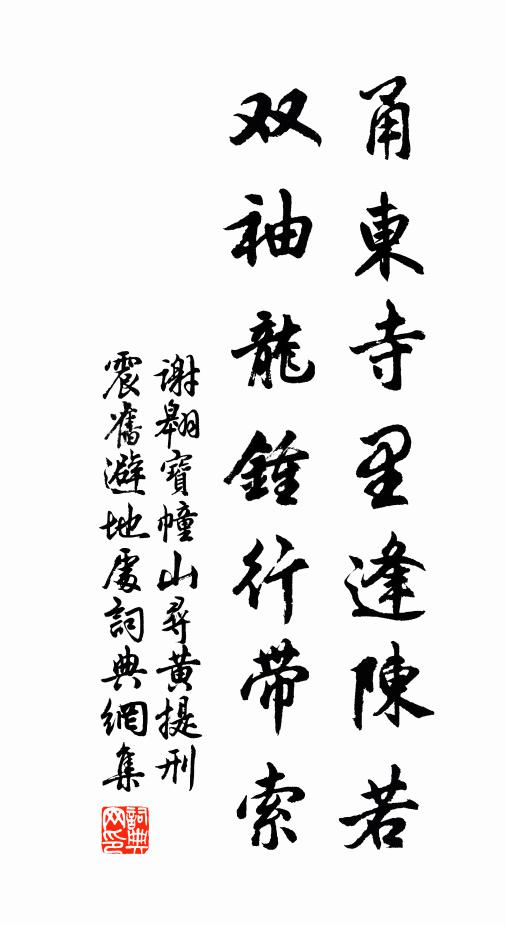 甬東寺里逢陳若
双袖龍鍾行帶索
谢翱寶幢山尋黃提刑
震舊避地處詞典網集
詞典网印